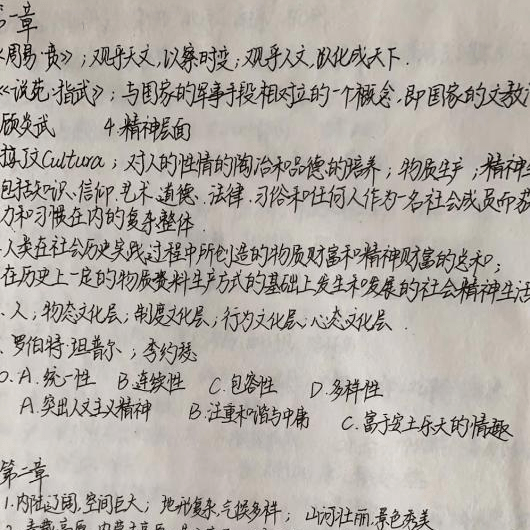 第一章
《周易·贲》；观乎天文，以察时变；观乎人文，以化成天下.
《说苑·指武》；与国家的军事手段相对立的一个概念，即国家的文教
4.精神层面
拉丁文Cultura；对人的性情的陶冶和品德的培养；物质生产；精神生
包括知识、信仰、艺术、道德、法律、习俗和任何人作为一名社会成员而获
力和习惯在内的复杂整体.
人类在社会历史实践过程中所创造的物质财富和精神财富的总和；
在历史上一定的物质资料生产方式的基础上发生和发展的社会精神生活
、人；物态文化层；制度文化层；行为文化层；心态文化层.
、罗伯特·坦普尔；李约瑟
0.A.统一性 B.连续性 C.包容性 D.多样性
A.突出人文主义精神 B.注重和谐与中庸 C.富于安土乐天的情趣
第二章
1.内陆辽阔，空间巨大；地形复杂，气候多样；山河壮丽，景色秀美